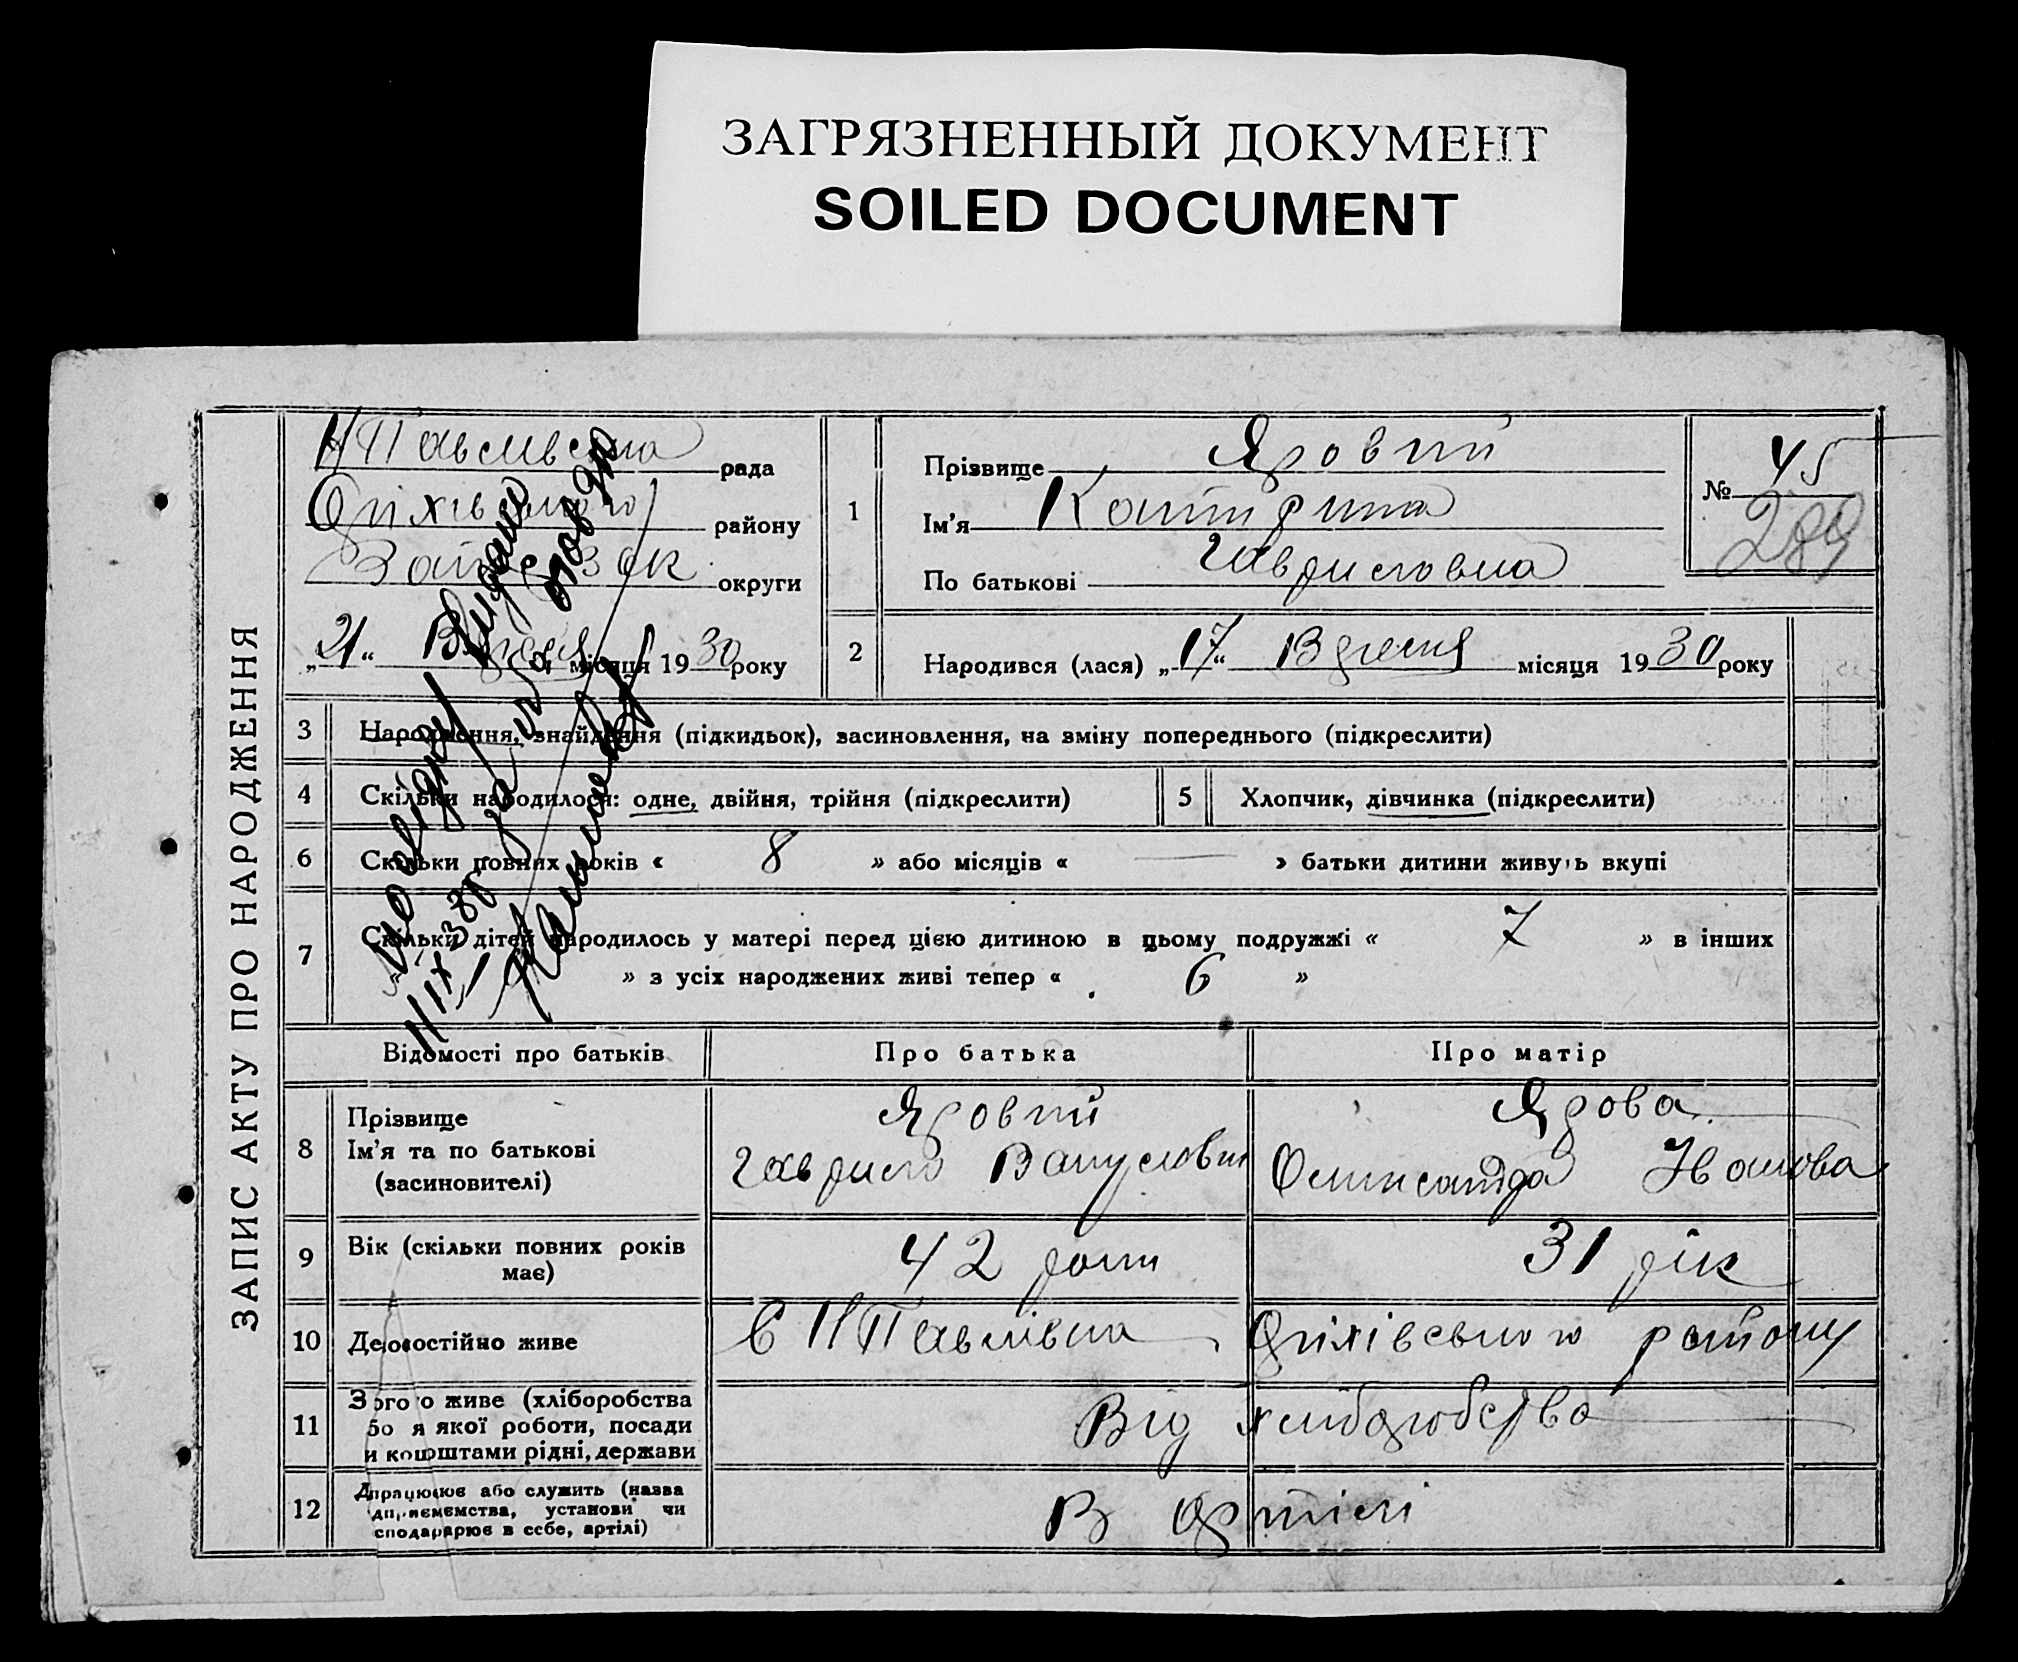 ЗАГРЯЗНЕННЫЙ ДОКУМЕНТ
SOILED DOCUMENT
ЗАПИС АКТУ ПРО НАРОДЖЕННЯ
Н Павлівська рада
Оріхівського району
Запоріз ок округи
„21“ Вересня місяця 1930 року
1
Прізвище Яровий
Ім'я Катирина
По батькові Гаврисловна
№ 45
289
2
Народився (лася) „17“ Вресня місяця 1930 року
3 Народження, знайдення (підкидьок), засиновлення, на зміну попереднього (підкреслити)
4 Скільки народилося: одне, двійня, трійня (підкреслити)
5 Хлопчик, дівчинка (підкреслити)
6 Скільки повних років « 8 » або місяців « — » батьки дитини живуть вкупі
7 Скільки дітей народилось у матері перед цією дитиною в цьому подружжі « 7 » в інших
» з усіх народжених живі тепер « 6 »
Відомості про батьків
Про батька
Про матір
8 Прізвище
Ім'я та по батькові
(засиновителі)
Яровий
Гаврило
Ярова
Олександра Іванова
9 Вік (скільки повних років
має)
42 роки
31 рік
10 Де постійно живе
С Н Павлівка Оріхівського району
11 З чого живе (хліборобства
бо я якої роботи, посади
и коштами рідні, держави
Від хліборобства
12 працює або служить (назва
установи чи
в себе, артілі)
В Артілі